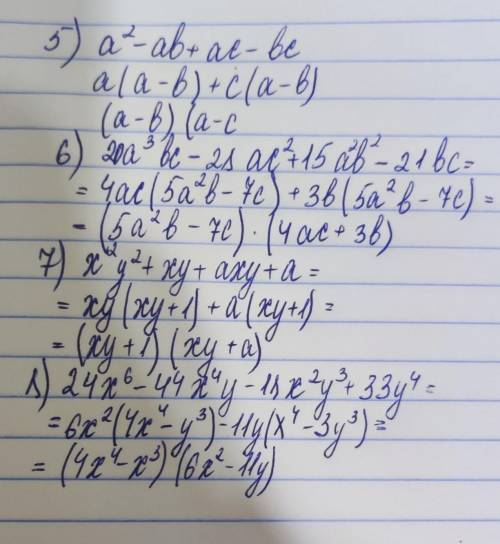 5) a² - ab + ac - bc
a(a-b) + c(a-b)
(a-b)(a-c
6) 20a³bc - 28ac² + 15a²b² - 21bc =
= 4ac(5a²b - 7c) + 3b(5a²b - 7c) =
= (5a²b - 7c) · (4ac + 3b)
7) x²y² + xy + axy + a =
= xy(xy+1) + a(xy+1) =
= (xy+1)(xy+a)
8) 24x⁶ - 44x⁴y - 18x²y³ + 33y⁴ =
= 6x²(4x⁴ - y³) - 11y(x⁴ - 3y³) =
= (4x⁴ - x³)(6x² - 11y)